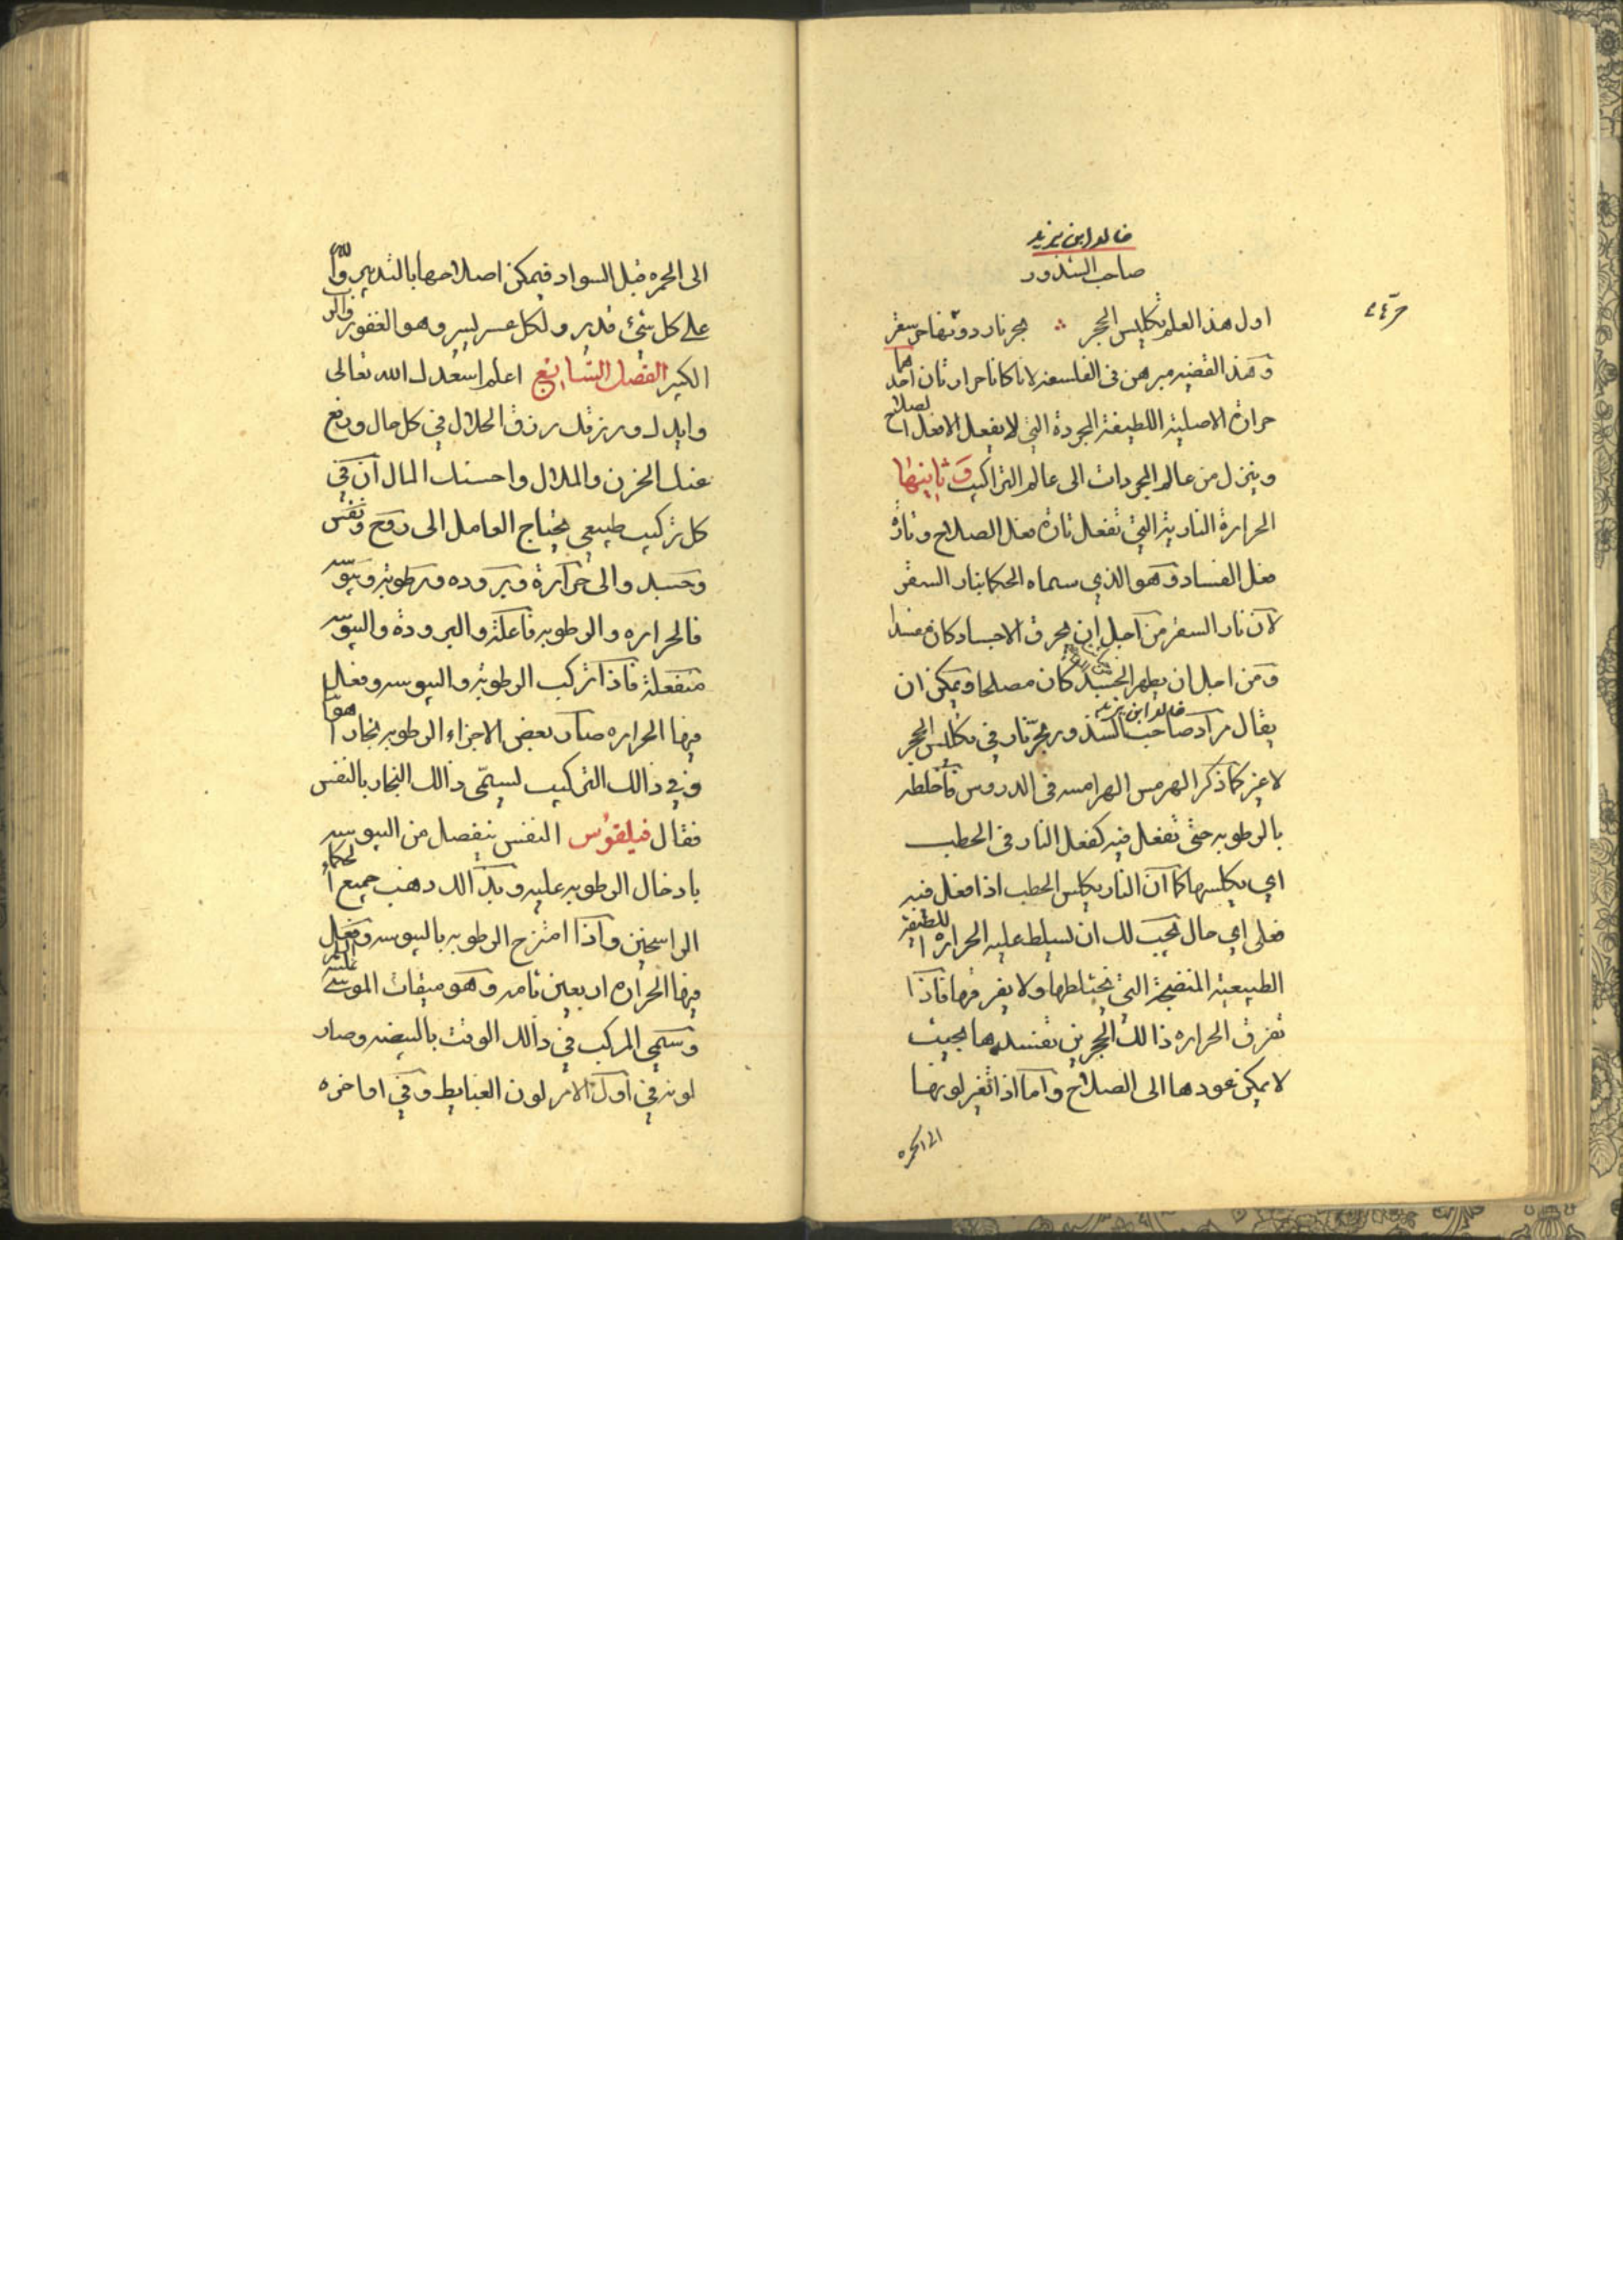 خالد ابن يزيد
صاحب الشذور
اول هذا العلم تكليس الحجر ∴ بحر نار دونها حر سقر
وهذا القضيه مبرهن فى الفلسفه لانا كانا حرارتان احدهما
حرارة الاصلية اللطيفة المجردة التي لا يفعل الا فعل الصلاح
وينزل من عالم المجردات الى عالم التراكيب وثانيتها
الحرارة النارية التي تفعل تارة فعل الصلاح وتارة
فعل الفساد وهو الذي سماه الحكما بنار السقر
لان نار السقر من اجل ان يحرق الاجساد كان مفسدا
ومن اجل ان يطهر الجسد كان مصلحا ويمكن ان
خالد ابن يزيد
يقال مراد صاحب الشذور بحر نار في تكليس الحجر
لاغير كما ذكر الهرمس الهرامسه فى الدروس فاخلطه
بالرطوبه حتى تفعل فيه كفعل النار فى الحطب
اي يكلسها كما ان النار يكلس الحطب اذا فعل فيه
فعلى اي حال يجب لك ان تسلط عليه الحراره اللطيفة
الطبيعية المنضجة التي تختلطها ولا يفرقها فاذا
تفرق الحراره ذالك الحجرين تفسدها بحيث
لا يمكن عودها الى الصلاح واما اذا تغير لونها
الى الحمره
الى الحمره قبل السواد فيمكن اصلاحها بالتدبير والله
على كل شئ قدير ولكل عسر يسير وهو الغفور
الكبير الفصل السابع اعلم اسعدك الله تعالى
وايدك ورزقك رزق الحلال في كل حال ورفع
عنك الحزن والملال واحسنك المال ان في
كل تركيب طبيعي يحتاج العامل الى روح ونفس
وجسد والى حرارة وبروده ورطوبة ويبوسه
فالحراره والرطوبه فاعلة والبرودة واليبوسه
منفعلة فاذا تركب الرطوبة واليبوسه وفعل
فيها الحراره صار بعض الاجزاء الرطوبه بخارا هوا
وفي ذالك التركيب ليسمّى ذالك البخار بالنفس
فقال فيلقوس النفس ينفصل من اليبوسه
بادخال الرطوبه عليه وبذالك ذهب جميع الحكماء
الراسخين واذا امتزج الرطوبه باليبوسه وفعل
فيها الحراره اربعين تامه وهو ميقات الموسى
وسمي المركب في ذالك الوقت بالبيضه وصار
لونه في اول الامر لون الغبايط وفي اواخره